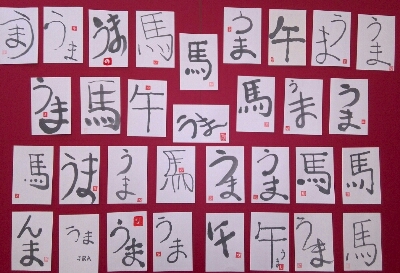 うま
うま
うま
馬
馬
うま
午
うま
うま
うま
馬
午
うま
馬
うま
うま
馬
うま
うま
馬
うま
うま
馬
馬
んま
うま
うま
うま
午
午
うま
馬